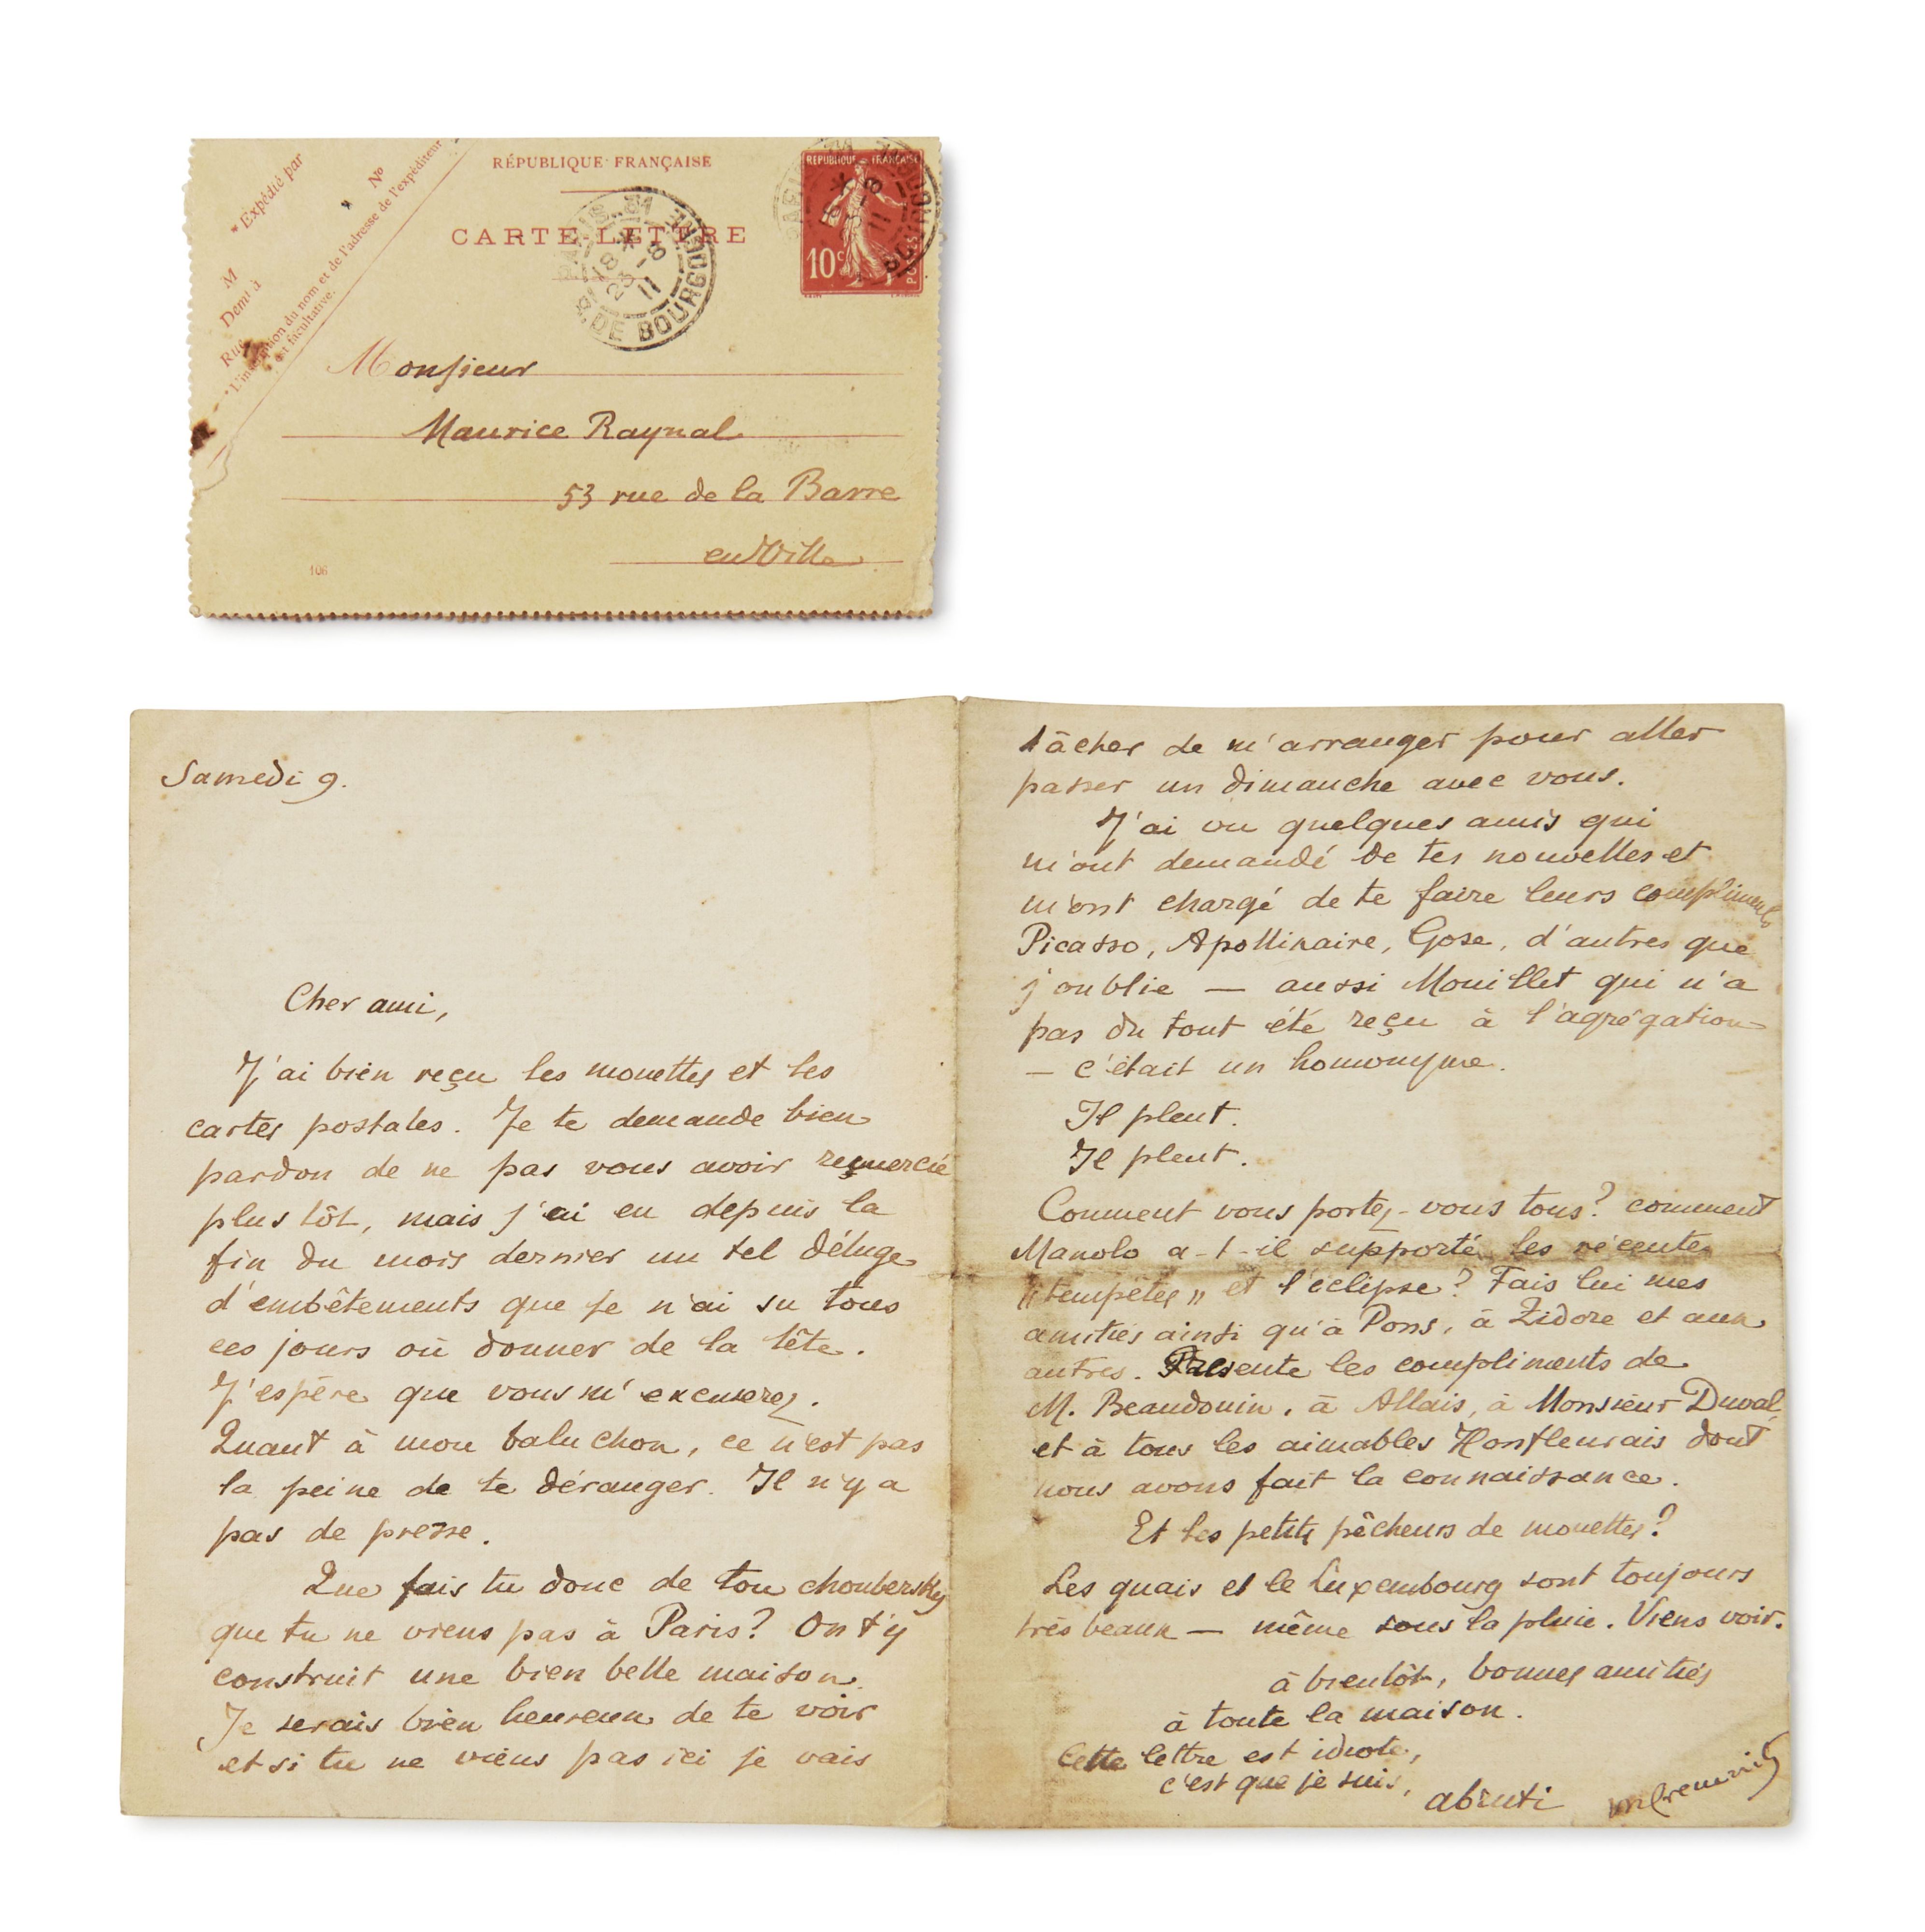 * Expédié par
N°
M
Demt à
Rue
* L'insertion du nom et de l'adresse de l'expéditeur
est facultative.
RÉPUBLIQUE FRANÇAISE
CARTE-LETTRE
PARIS
18 * 23 -8 11
DE BOURGOGNE
REPUBLIQUE FRANÇAISE
10c
POSTES
Monsieur
Maurice Raynal
53 rue de la Barre
en Ville
106
Samedi 9.
Cher ami,
J'ai bien reçu les mouettes et les
cartes postales. Je te demande bien
pardon de ne pas vous avoir remercié
plus tôt, mais j'ai eu depuis la
fin du mois dernier un tel déluge
d'embêtements que je n'ai su tous
ces jours où donner de la tête.
J'espère que vous m'excuserez.
Quant à mon baluchon, ce n'est pas
la peine de te déranger. Il n'y a
pas de presse.
Que fais tu donc de ton choubersky
que tu ne viens pas à Paris? On t'y
construit une bien belle maison.
Je serais bien heureux de te voir
et si tu ne viens pas ici je vais
tâcher de m'arranger pour aller
passer un dimanche avec vous.
J'ai vu quelques amis qui
m'ont demandé de tes nouvelles et
m'ont chargé de te faire leurs compliments
Picasso, Apollinaire, Gose, d'autres que
j'oublie — aussi Mouillet qui n'a
pas du tout été reçu à l'agrégation
— c'était un homonyme.
Il pleut.
Il pleut.
Comment vous portez-vous tous? comment
Manolo a-t-il supporté les récentes
"tempêtes" et l'éclipse? Fais lui mes
amitiés ainsi qu'à Pons, à Zidore et aux
autres. Présente les compliments de
M. Beaudouin, à Allais, à Monsieur Duval
et à tous les aimables Honfleurais dont
nous avons fait la connaissance.
Et les petits pêcheurs de mouettes?
Les quais et le Luxembourg sont toujours
très beaux — même sous la pluie. Viens voir.
à bientôt, bonnes amitiés
à toute la maison.
Cette lettre est idiote,
c'est que je suis, abruti
mCremnitz